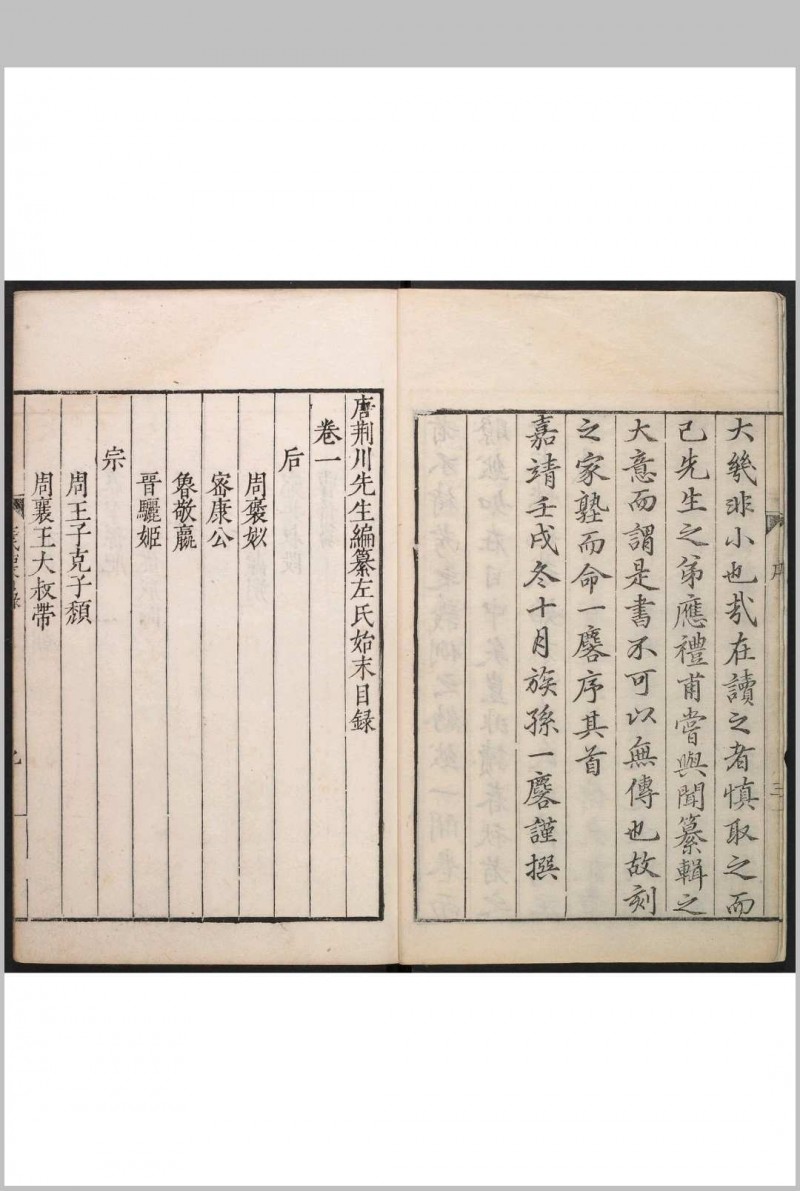 大幾非小也哉在讀之者慎取之而
已先生之弟應禮甫嘗與聞纂輯之
大意而謂是書不可以無傳也故刻
之家塾而命一麐序其首
嘉靖壬戌冬十月族孫一麐謹撰
序
三
唐荊川先生編纂左氏始末目録
卷一
后
周褒姒
密康公
魯敬嬴
晉驪姬
宗
周王子克子頹
周襄王大叔帶